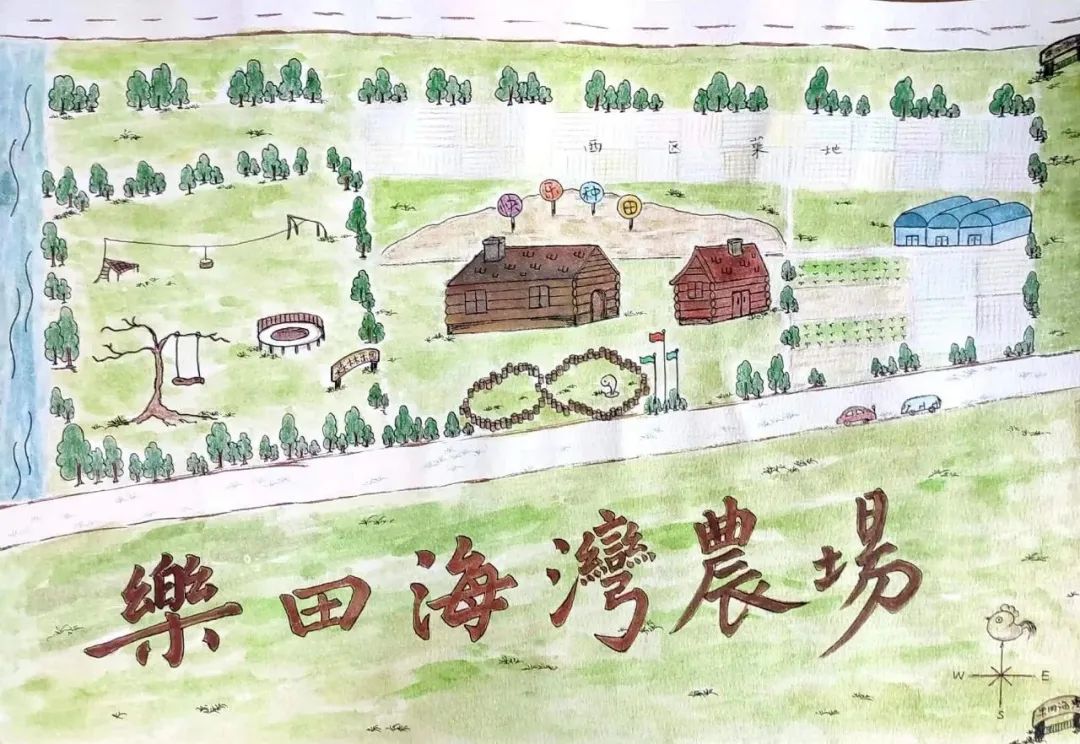 西区菜地
快乐种田
樂田海灣農場
W E
S